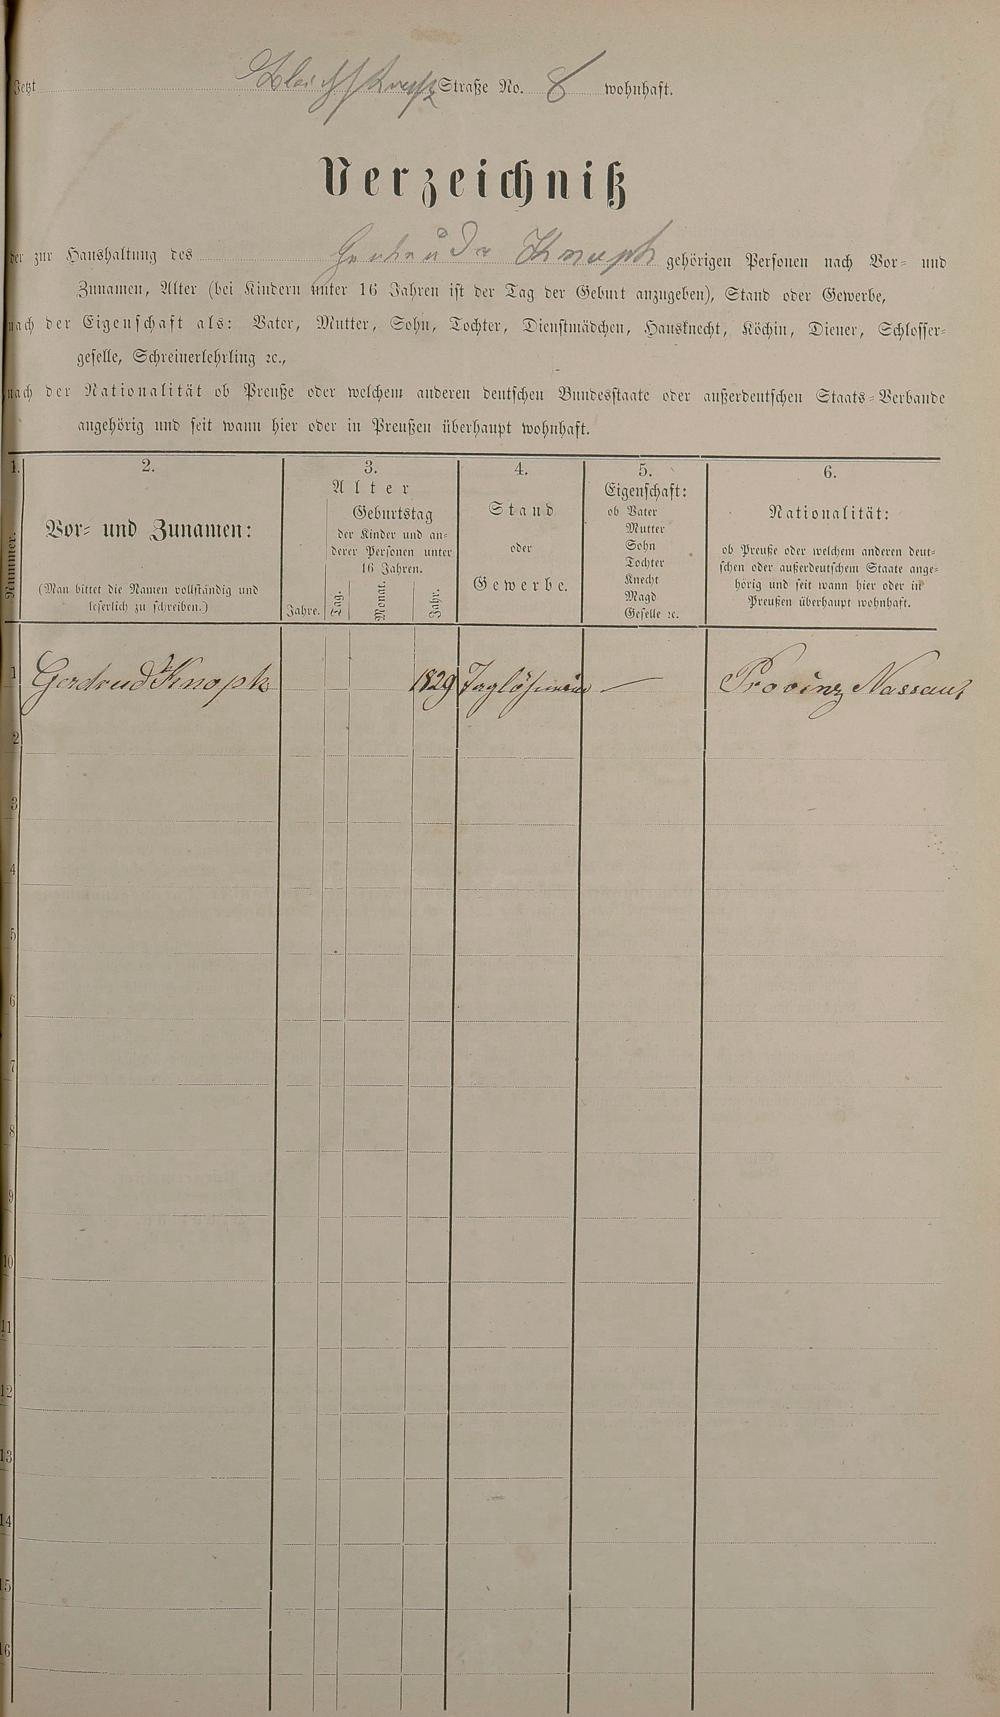 Jetzt Bleichstraße Straße No. 8 wohnhaft.
Verzeichniß
der zur Haushaltung des Gertruda Knoph gehörigen Personen nach Vor- und
Zunamen, Alter (bei Kindern unter 16 Jahren ist der Tag der Geburt anzugeben), Stand oder Gewerbe,
nach der Eigenschaft als: Vater, Mutter, Sohn, Tochter, Dienstmädchen, Hausknecht, Köchin, Diener, Schlosser-
geselle, Schreinerlehrling ꝛc.,
nach der Nationalität ob Preuße oder welchem anderen deutschen Bundesstaate oder außerdeutschen Staats-Verbande
angehörig und seit wann hier oder in Preußen überhaupt wohnhaft.
1.
Nummer.
2.
Vor- und Zunamen:
(Man bittet die Namen vollständig und
leserlich zu schreiben.)
3.
Alter
Jahre.
Geburtstag
der Kinder und an-
derer Personen unter
16 Jahren.
Tag.
Monat.
Jahr.
4.
Stand
oder
Gewerbe.
5.
Eigenschaft:
ob Vater
Mutter
Sohn
Tochter
Knecht
Magd
Geselle ꝛc.
6.
Nationalität:
ob Preuße oder welchem anderen deut-
schen oder außerdeutschem Staate ange-
hörig und seit wann hier oder in
Preußen überhaupt wohnhaft.
1 Gerdrud Knoph 1829 Taglöhnerin — Provinz Nassau
2
3
4
5
6
7
8
9
10
11
12
13
14
15
16